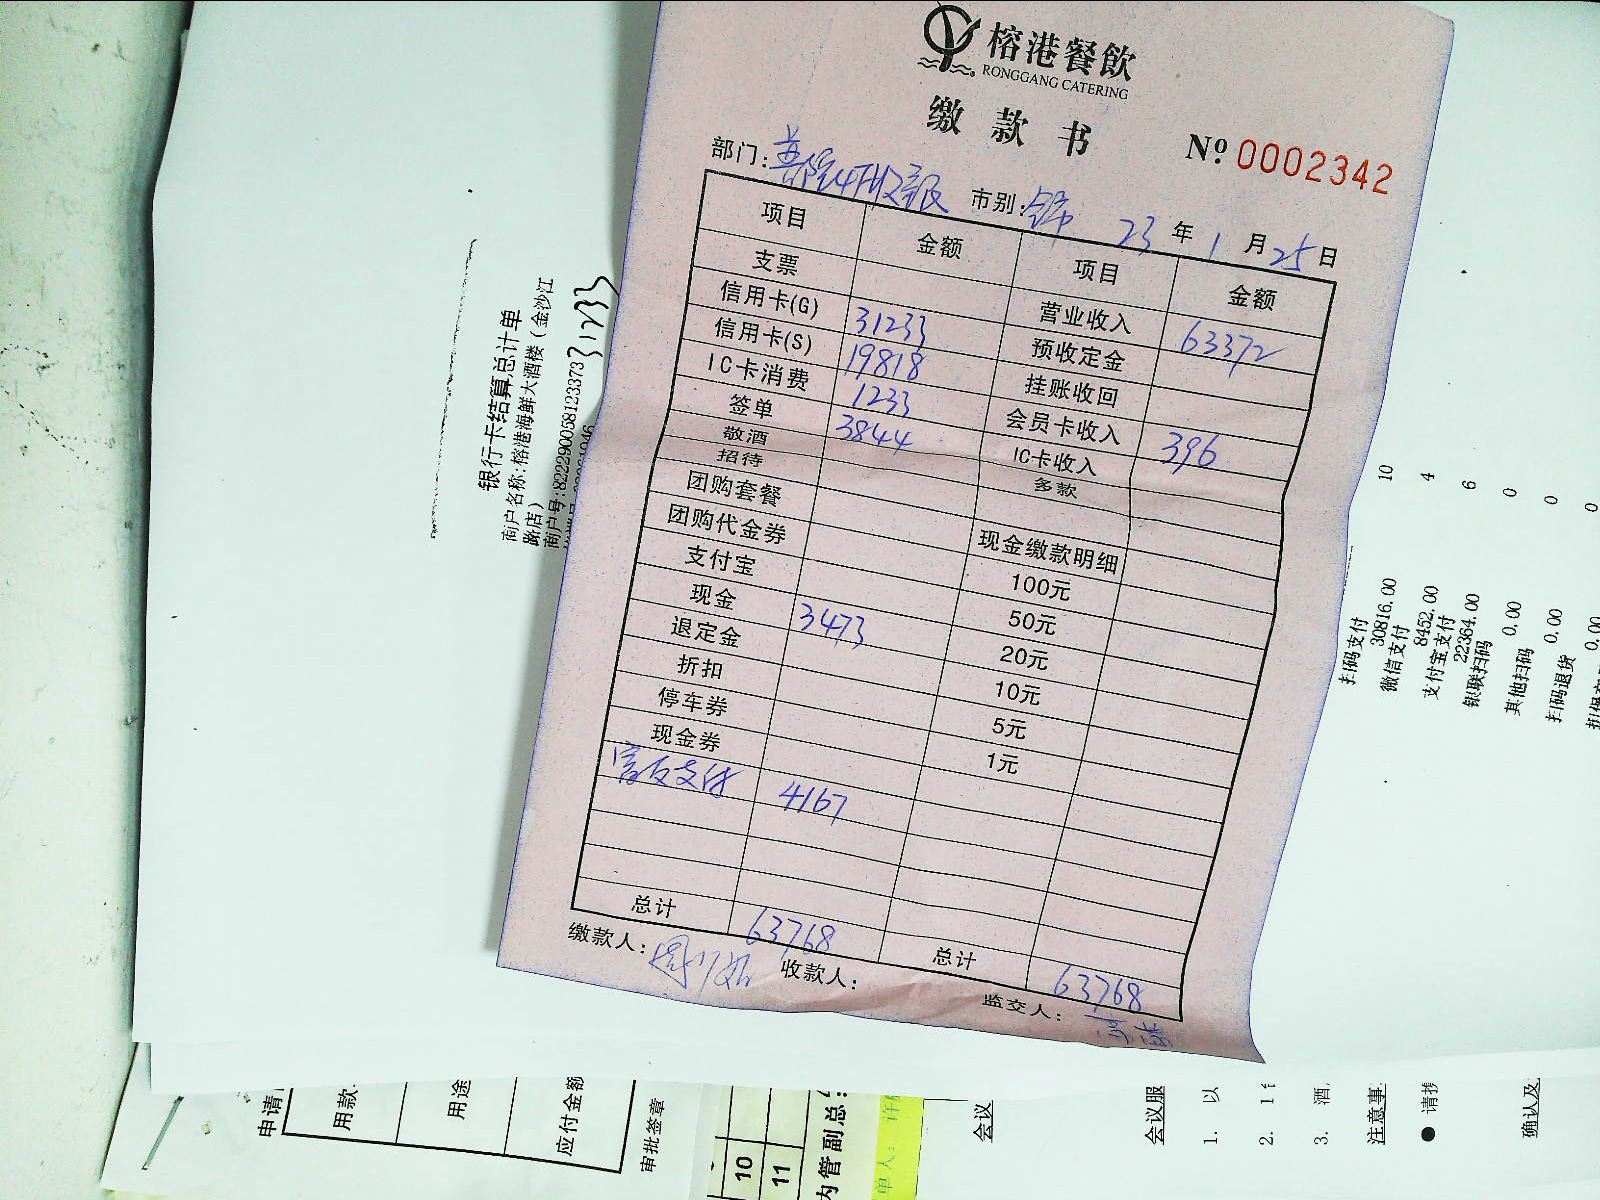 榕港餐飲
RONGGANG CATERING
缴款书
№ 0002342
部门: 普陀4开收银 市别: 23年1月25日
项目 金额 项目 金额
支票 营业收入 63372
信用卡(G) 31233 预收定金
信用卡(S) 19818 挂账收回
IC卡消费 1233 会员卡收入 396
签单 3844 IC卡收入
敬酒 多款
招待
团购套餐 现金缴款明细
团购代金券 100元
支付宝 50元
现金 3473 20元
退定金 10元
折扣 5元
停车券 1元
现金券
支付 4167
总计 63768 总计 63768
缴款人: 收款人: 监交人:
银行卡结算总计单
商户名称:榕港海鲜大酒楼(金沙江
路店)
商户号:822290058123373
31233
扫码支付 10
30816.00
微信支付 4
8452.00
支付宝支付 6
22364.00
银联扫码 0
0.00
其他扫码 0
0.00
扫码退货 0
0.00
申请
用款
用途
应付金额
审批签章
10
11
内管副总:
单人:
会议
会议服
1. 以
2. 1
3. 酒
注意事
● 请
确认及